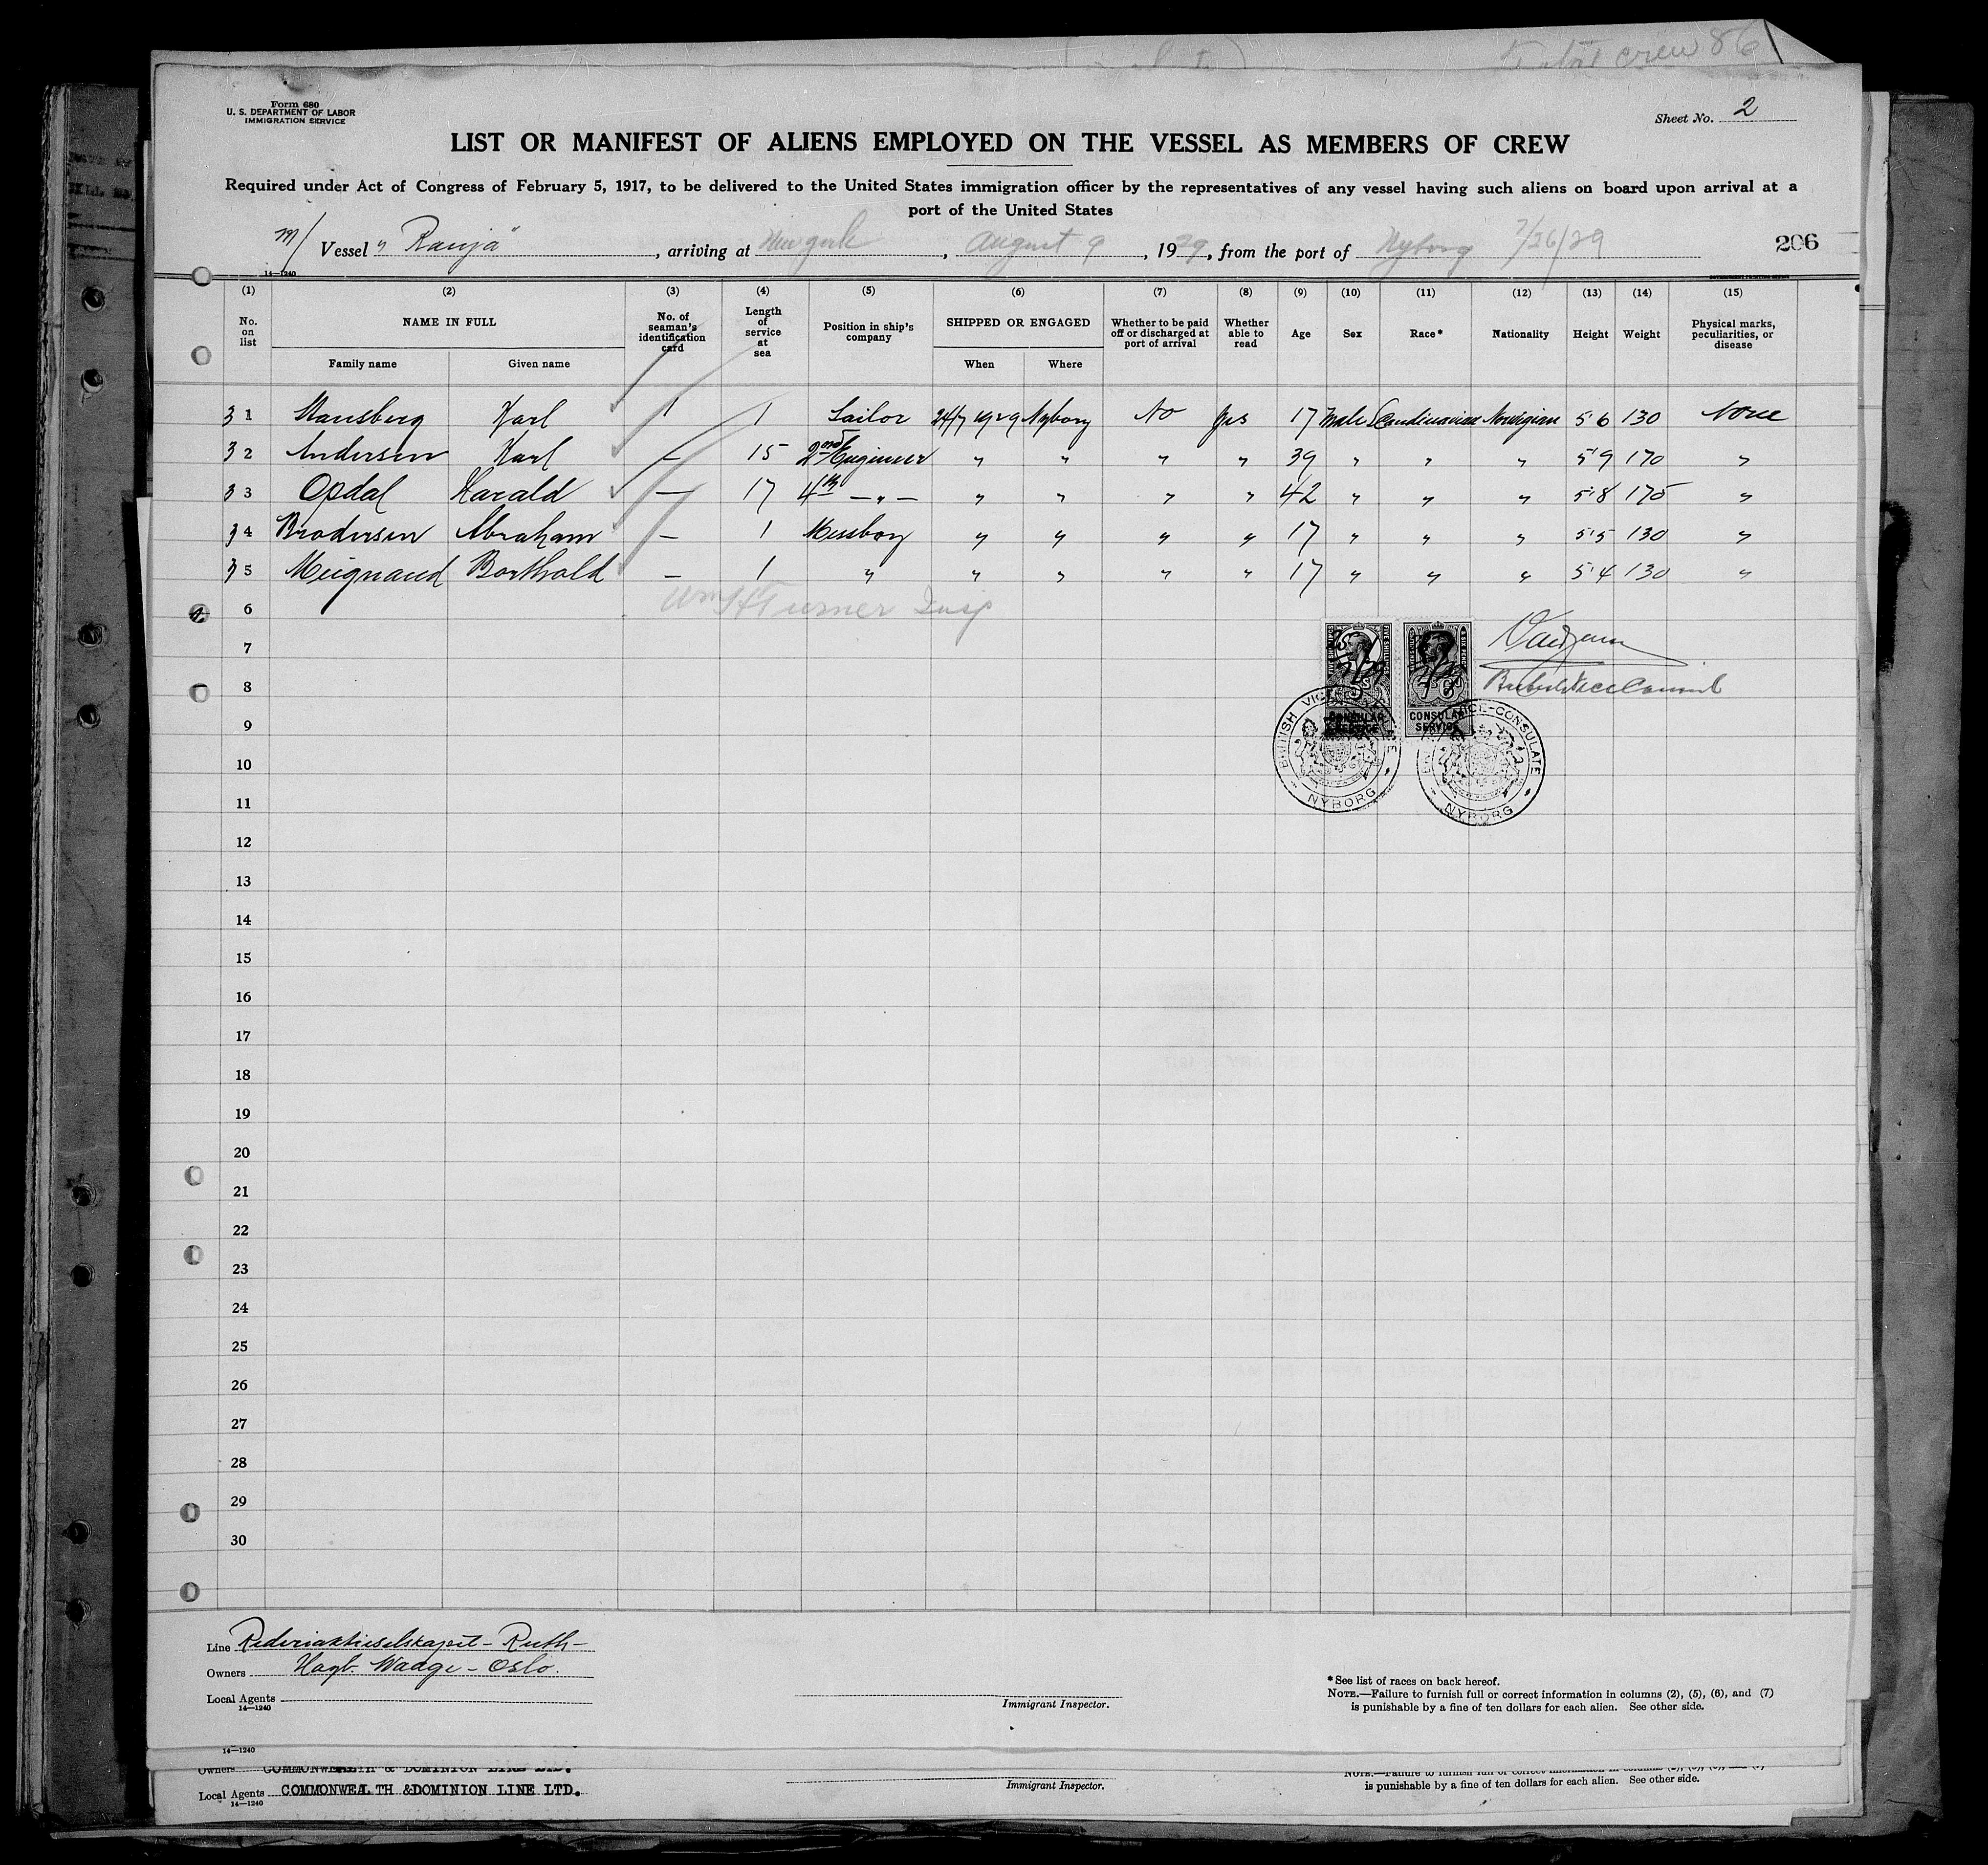 crew 86
Form 680
U. S. DEPARTMENT OF LABOR
IMMIGRATION SERVICE
Sheet No. 2
LIST OR MANIFEST OF ALIENS EMPLOYED ON THE VESSEL AS MEMBERS OF CREW
Required under Act of Congress of February 5, 1917, to be delivered to the United States immigration officer by the representatives of any vessel having such aliens on board upon arrival at a
port of the United States
m/ Vessel "Ranja", arriving at New York, August 9, 1929, from the port of Nyborg 7/26/29
206
14—1240
(1) (2) (3) (4) (5) (6) (7) (8) (9) (10) (11) (12) (13) (14) (15)
No. on list NAME IN FULL Family name Given name No. of seaman's identification card Length of service at sea Position in ship's company SHIPPED OR ENGAGED When Where Whether to be paid off or discharged at port of arrival Whether able to read Age Sex Race* Nationality Height Weight Physical marks, peculiarities, or disease
31 Karl 1 Sailor 24/7 1929 Nyborg No Yes 17 Male Scandinavian Norwigian 5'6 130 None
32 Andersen Karl — 15 2nd Engineer " " " " 39 " " " 5'9 170 "
33 Opdal Harald — 17 4th —"— " " " " 42 " " " 5'8 175 "
34 Brodersen Abraham — 1 Messboy " " " " 17 " " " 5'5 130 "
35 Borthold — 1 " " " " " 17 " " " 5'4 130 "
6 Wm H Turner Insp
7
8 British Vice Consul
CONSULAR SERVICE
CONSULAR SERVICE
BRITISH VICE-CONSULATE NYBORG
BRITISH VICE-CONSULATE NYBORG
9
10
11
12
13
14
15
16
17
18
19
20
21
22
23
24
25
26
27
28
29
30
Line Rederiaktieselskapet - Ruth -
Owners Hagb. Waage - Oslo.
Local Agents
14—1240
Immigrant Inspector.
*See list of races on back hereof.
NOTE.—Failure to furnish full or correct information in columns (2), (5), (6), and (7)
is punishable by a fine of ten dollars for each alien. See other side.
14—1240
Owners COMMONWEALTH & DOMINION LINE LTD.
Local Agents COMMONWEALTH &DOMINION LINE LTD.
14—1240
Immigrant Inspector.
NOTE.—Failure to furnish full or correct information in columns
is punishable by a fine of ten dollars for each alien. See other side.